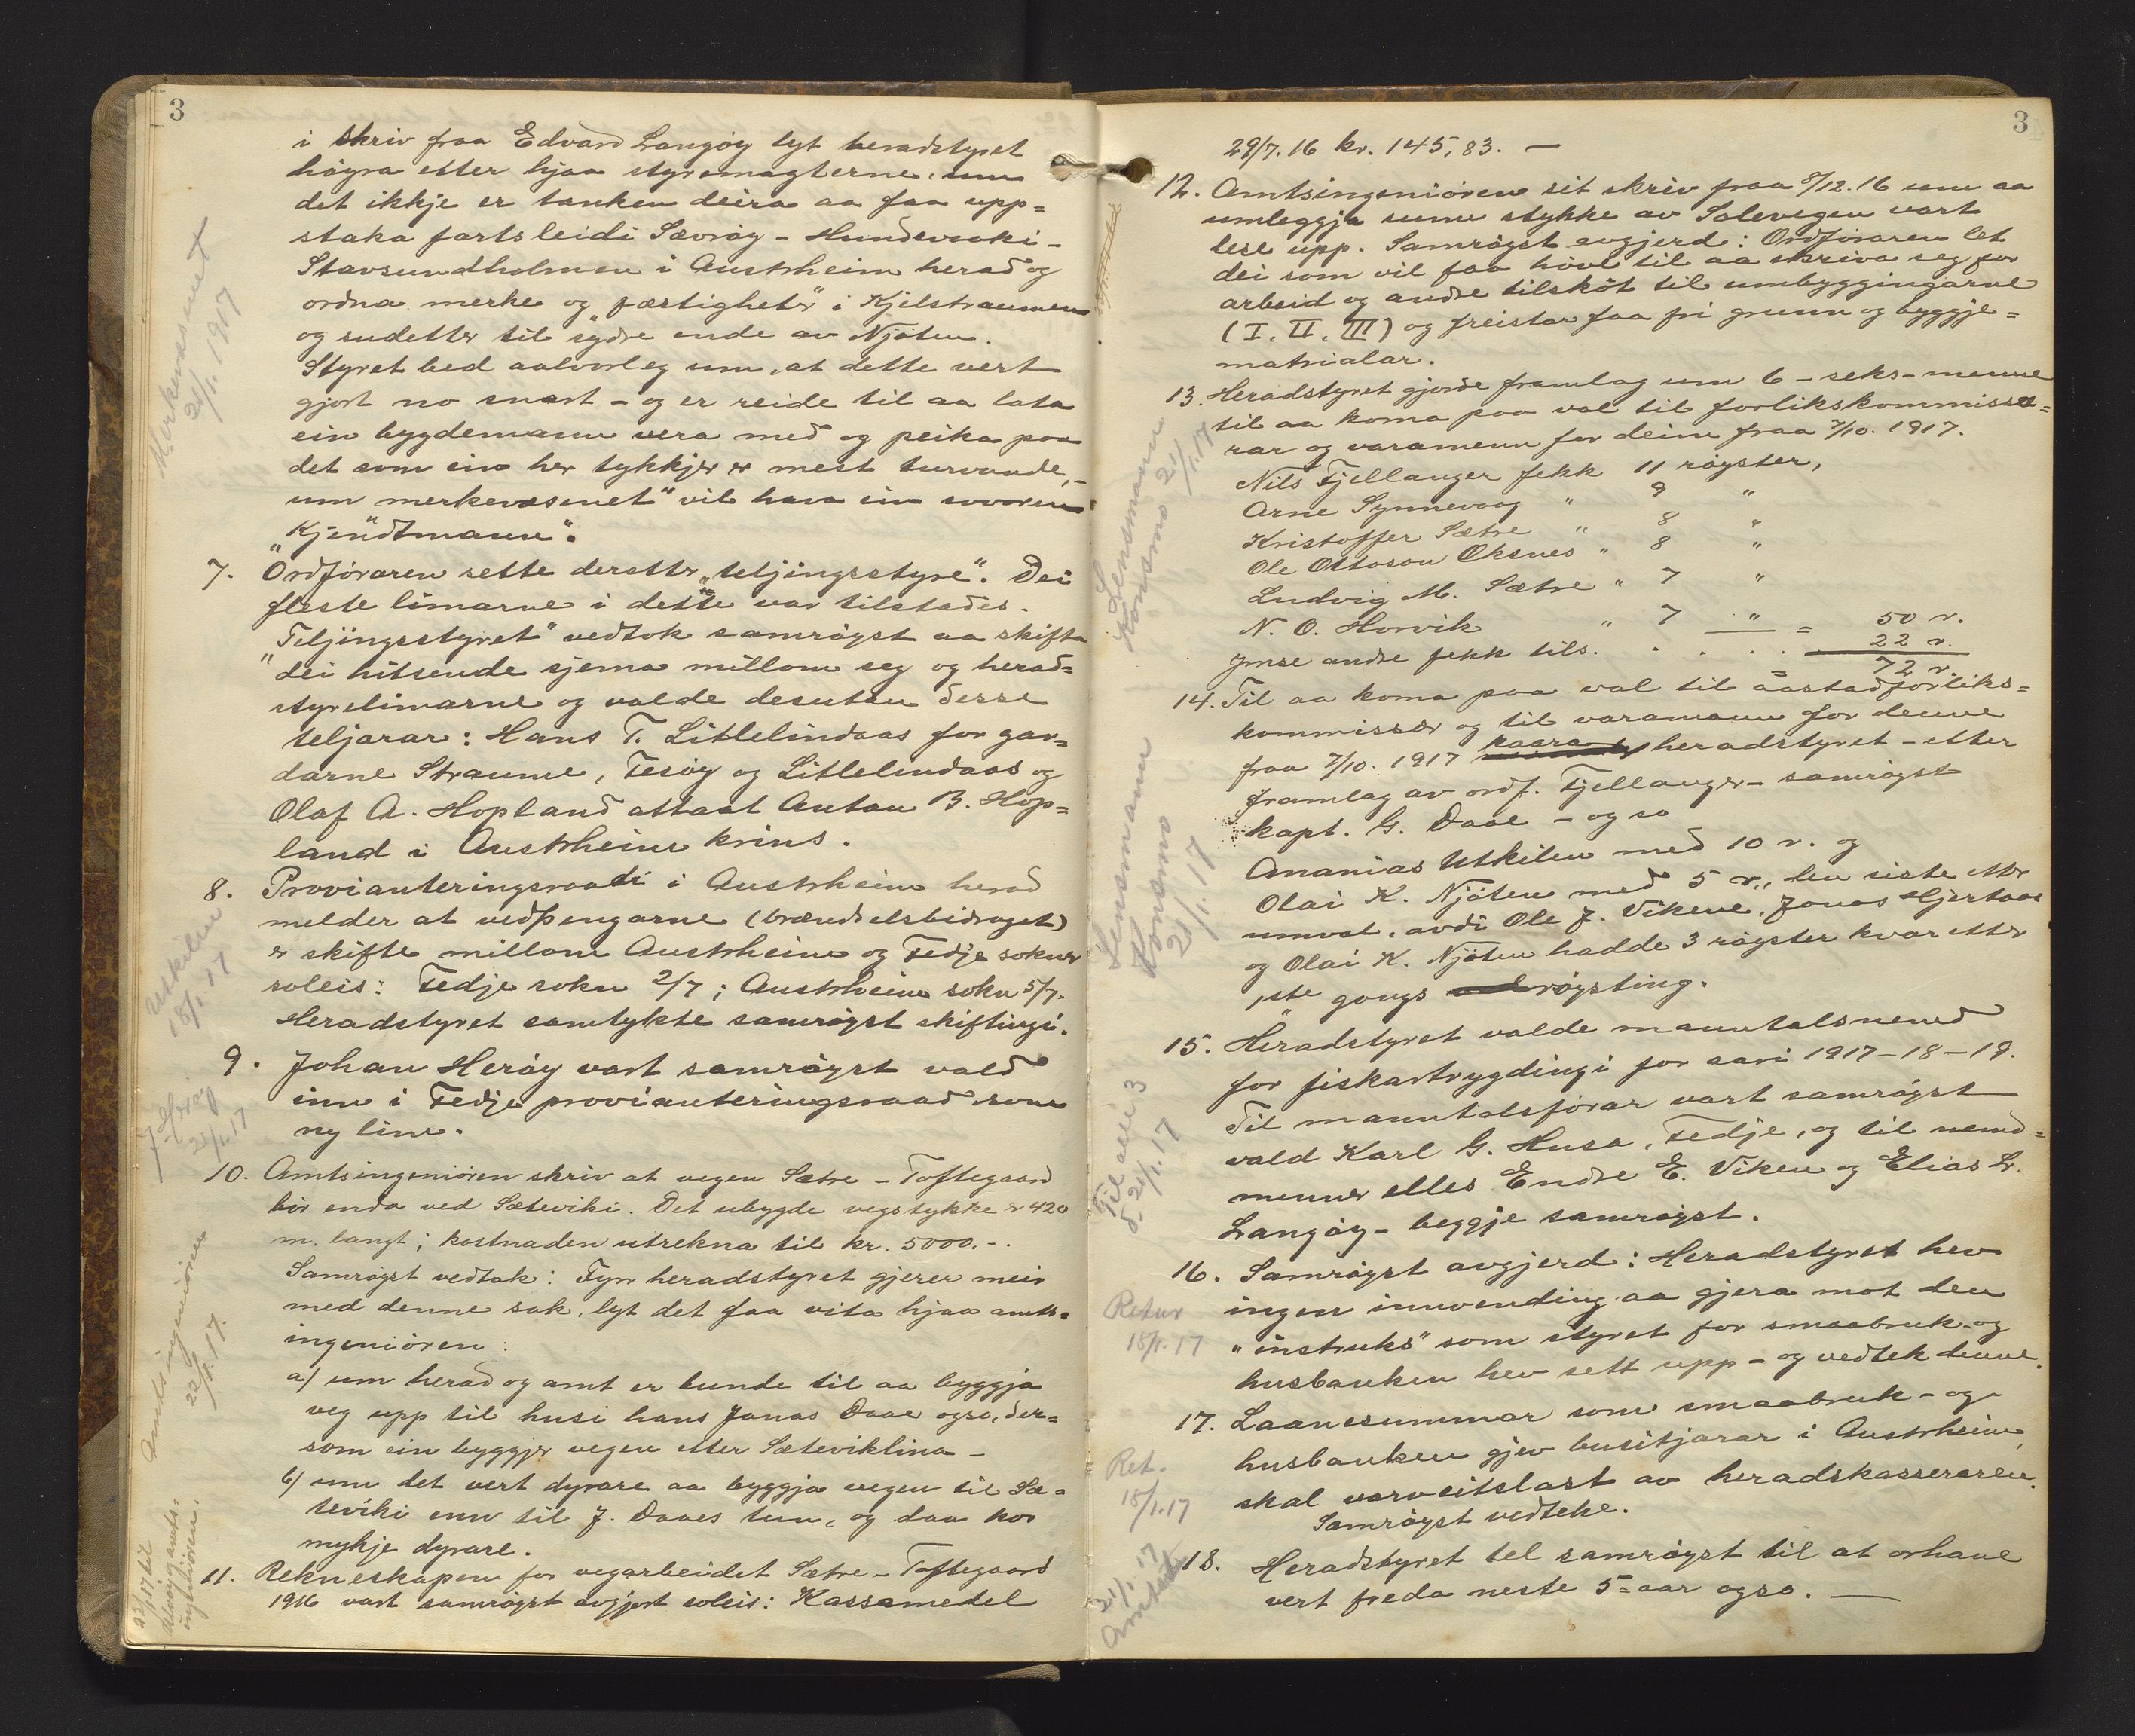 3
i skriv fraa Edvard Langøy lyt heradstyret
høyra etter hjaa styremagterne, um
det ikkje er tanken deira aa faa upp=
staka fartsleidi Sævrøy - Hundevaaki -
Stavsundholmen i Austrheim herad og
ordna merke og „fæstigheter" i Kjelstraumen
og sudetter til sydre ende av Njøten.
Styret bed aalvorleg um, at dette vert
gjort no snart - og er reide til aa lata
ein bygdemann vera med og peika paa
det som ein her tykkjer er mest turvande,-
um merkevæsenet" vil hava ein sovoren
„Kjendtmann".
7. Ordføraren sette deretter „teljingsstyre". Dei
fleste limarne i dette var tilstades.
„Teljingsstyret" vedtok samrøyst aa skifta
dei hitsende sjema millom seg og herad=
styrelimarne og valde desutan desse
teljarar: Hans T. Litlelindaas for gar=
darne Straume, Fesøy og Litlelindaas og
Olaf A. Hopland attaat Anton B. Hop=
land i Austrheim krins.
8. Provianteringsraadi i Austrheim herad
melder at vedpengarne (brændselsbidraget)
er skifte millom Austrheim og Fedje sokner
soleis: Fedje sokn 2/7; Austrheim sokn 5/7.
Heradstyret samtykte samrøyst skiftingi.
9. Johan Herøy vart samrøyst vald
inn i Fedje provianteringsraad som
ny lim.
10. Amtsingeniøren skriv at vegen Sætre - Toftegaard
bør enda ved Sæteviki. Det ubygde vegstykke er 420
m. langt; kostnaden utrekna til kr. 5000.-.
Samrøyst vedtak: Fyrr heradstyret gjerer meir
med denne sak, lyt det faa vita hjaa amts=
ingeniøren:
a) um herad og amt er bunde til aa byggja
veg upp til husi hans Jonas Daae ogso, der=
som ein byggjer vegen etter Sæteviklina -
b) um det vert dyrare aa byggja vegen til Sæ=
teviki enn til J. Daaes tun, og daa kor
mykje dyrare.
11. Rekneskapen for vegarbeidet Sætre - Toftegaard
1916 vart samrøyst avgjort soleis: Kassamedel
Merkevæsenet
21/1. 1917
Utkilen
18/1. 17
J. Herøy
21/1. 17
Amtsingeniøren
22/1. 17.
3
29/7. 16 kr. 145,83. —
12. Amtsingeniøren sit skriv fraa 8/12. 16 um aa
umleggja sume stykke av Solevegen vart
lese upp. Samrøyst avgjerd: Ordføraren let
dei som vil faa høve til aa skriva seg for
arbeid og andre tilskot til umbyggingarne
(I, II, III) og freistar faa fri grunn og byggje=
matrialar.
13. Heradstyret gjorde framlag um 6 - seks - menne
til aa koma paa val til forlikskommissæ=
rar og varamenn for deim fraa 7/10. 1917.
Nils Fjellanger fekk 11 røyster,
Arne Synnevaag " 9 "
Kristoffer Sætre " 8 "
Ole Ottoson Oksnes " 8 "
Ludvig M. Sætre " 7 "
N. O. Horvik " 7 " = 50 r.
Ymse andre fekk tils. . . . . 22 r.
= 72 r.
14. Til aa koma paa val til aastadforliks=
kommissær og til varamann for denne
fraa 7/10. 1917 kaara heradstyret - etter
framlag av ordf. Fjellanger - samrøyst
kapt. G. Daae - og so
Ananias Utkilen med 10 r. og
Olai K. Njøten med 5 r., den siste etter
umvat, avdi Ole J. Vikene, Jonas Hjertaas
og Olai K. Njøten hadde 3 røyster kvar etter
1ste gongs røysting.
15. Heradstyret valde manntalsnemd
for fiskartrygdingi for aari 1917-18-19.
Til manntalsførar vart samrøyst
vald Karl G. Husa, Fedje, og til nemd=
menner elles Endre E. Viken og Elias L.
Langøy - beggje samrøyst.
16. Samrøyst avgjerd: Heradstyret hev
ingen innvending aa gjera mot den
„instruks" som styret for smaabruk- og
husbanken hev sett upp - og vedtek denne.
17. Laanesummar som smaabruk- og
husbanken gjev busitjarar i Austrheim,
skal varveitslast av heradskasseraren.
Samrøyst vedteke.
18. Heradstyret tel samrøyst til at orhane
vert freda neste 5-aar ogso. —
Lensmann
Konsmo 21/1. 17
Lensmann
Konsmo
21/1. 17
Retur
18/1. 17
Ret.
18/1. 17
21/1. 17
Amtet